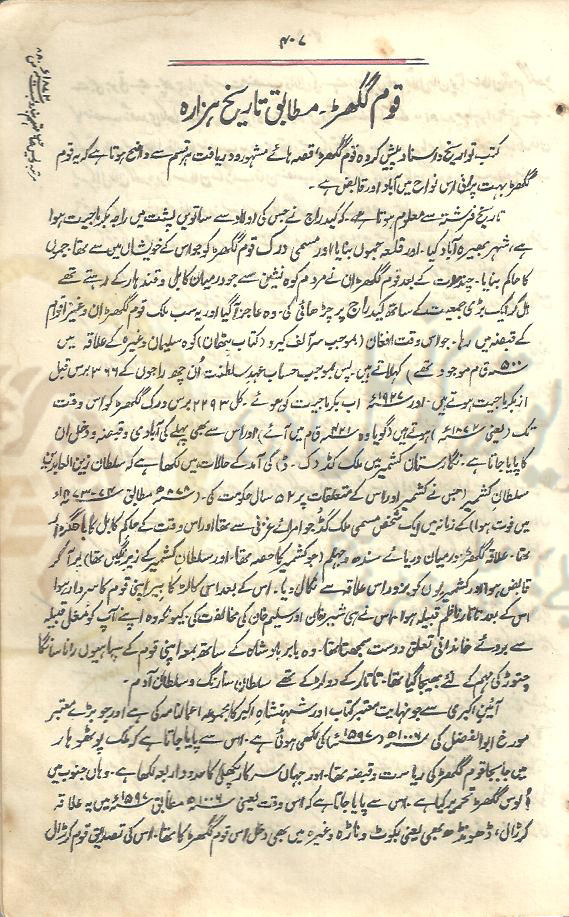 ۴۰۷
قوم گکھڑ۔ مطابق تاریخ ہزارہ
کتب تواریخ و اسناد پیش کردہ قوم گکھڑ، قصہ ہائے مشہور و دریافت ہر قسم سے واضح ہوتا ہے کہ یہ قوم
گکھڑ بہت پرانی اس نواح میں آباد اور قابض ہے۔
تاریخ فرشتہ سے معلوم ہوتا ہے کہ کیدراج نے جس کی اولاد سے ساتویں پشت میں راجہ بکرماجیت ہوا
ہے، شہر بھیرہ آباد کیا۔ اور قلعہ جموں بنایا اور مسمی درگ قوم گکھڑ کو جو اس کے خویشاں میں سے تھا، جموں
کا حاکم بنایا۔ چند مدت کے بعد قوم گکھڑان نے مردم کوہ نشین سے جو درمیان کابل و قندہار کے رہتے تھے
مل کر ایک بڑی جمعیت کے ساتھ کیدراج پر چڑھائی کی۔ وہ عاجز آگیا اور یہ سب ملک قوم گکھڑان وغیرہ اقوام
کے قبضہ میں رہا۔ جو اس وقت افغان (بموجب سر آلف کیرو (کتاب پٹھان) کوہ سلیمان وغیرہ کے علاقہ میں
۵۰۰ ق م موجود تھے) کہلاتے ہیں۔ پس بموجب حساب عہد سلطنت اُن چھ راجوں کے ۳۶۶ برس قبل
از بکرماجیت ہوتے ہیں۔ اور ۱۹۲۷ اب بکرماجیت کو ہوئے۔ کل ۲۲۹۳ برس ورک گکھڑ کو اس وقت
تک (یعنی ۱۸۷۲ء) ہوتے ہیں (گویا وہ ۴۲۱ ق م میں آئے) اور اس سے بھی پہلے کی آبادی و قبضہ و دخل ان
کا پایا جاتا ہے۔ نگارستان کشمیر میں ملک کد (ک۔ د) کی آمد کے حالات میں لکھا ہے کہ سلطان زین العابدین
سلطان کشمیر (جس نے کشمیر اور اس کے متعلقات پر ۵۲ سال حکومت کی۔
میں فوت ہوا) کے زمانہ میں ایک شخص مسمی ملک کد جو امرائے غزنی سے تھا اور اس وقت کے حاکم کابل کا باجگذار
تھا۔ علاقہ گکھڑ درمیان دریائے سندھ و جہلم (جو کشمیر کا حصہ تھا۔ اور سلطان کشمیر کے زیر نگیں تھا) پر آ کر
قابض ہوا اور کشمیریوں کو بزور اس علاقہ سے نکال دیا۔ اس کے بعد اس کا لڑکا بیر اپنی قوم کا سردار ہوا
اس کے بعد تاتار ناظم قبیلہ ہوا، اس نے ہی شیر خان اور سلیم خان کی مخالفت کی کیونکہ وہ اپنے آپ کو مغل قبیلہ
سے بروئے خاندانی تعلق دوست سمجھتا تھا۔ وہ بابر بادشاہ کے ساتھ بمعہ اپنی قوم کے سپاہیوں رانا سانگا
چتوڑ کی مہم کے لئے بھیجا گیا تھا۔ تاتار کے دو لڑکے تھے سلطان سارنگ و سلطان آدم۔
آئین اکبری سے جو نہایت معتبر کتاب اور شہنشاہ اکبر کا مجموعہ اعمالنامہ کی ہے اور جو بڑے معتبر
مورخ ابوالفضل کی ۱۰۰۶ھ (۱۵۹۷ء) کی لکھی ہوئی ہے۔ اس سے پایا جاتا ہے کہ ملک پوٹھوہار
میں جابجا قوم گکھڑ کی ریاست و قبضہ تھا۔ اور جہاں سرکار پکھلی کا حدود اربعہ لکھا ہے۔ وہاں جنوب میں
اُلوس گکھڑ تحریر کیا ہے۔ اس سے پایا جاتا ہے کہ اس وقت یعنی ۱۰۰۶ھ مطابق ۱۵۹۷ء میں یہ علاقہ
کڑال، ڈھونڈ بھی یعنی بکوٹ و ناڑہ وغیرہ میں بھی دخل اس قوم گکھڑ کا تھا۔ اس کی تصدیق قوم کڑال